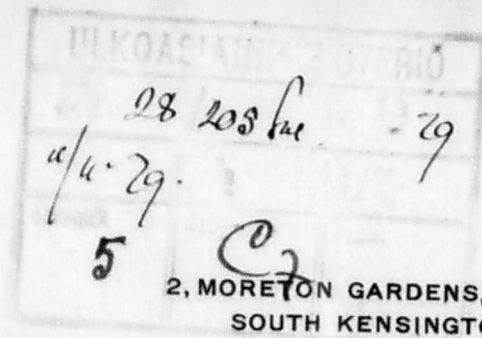 ULKOASIAINMINISTERIÖ
28 205 - 29
29.
5 C7
2, MORETON GARDENS,
SOUTH KENSINGTO